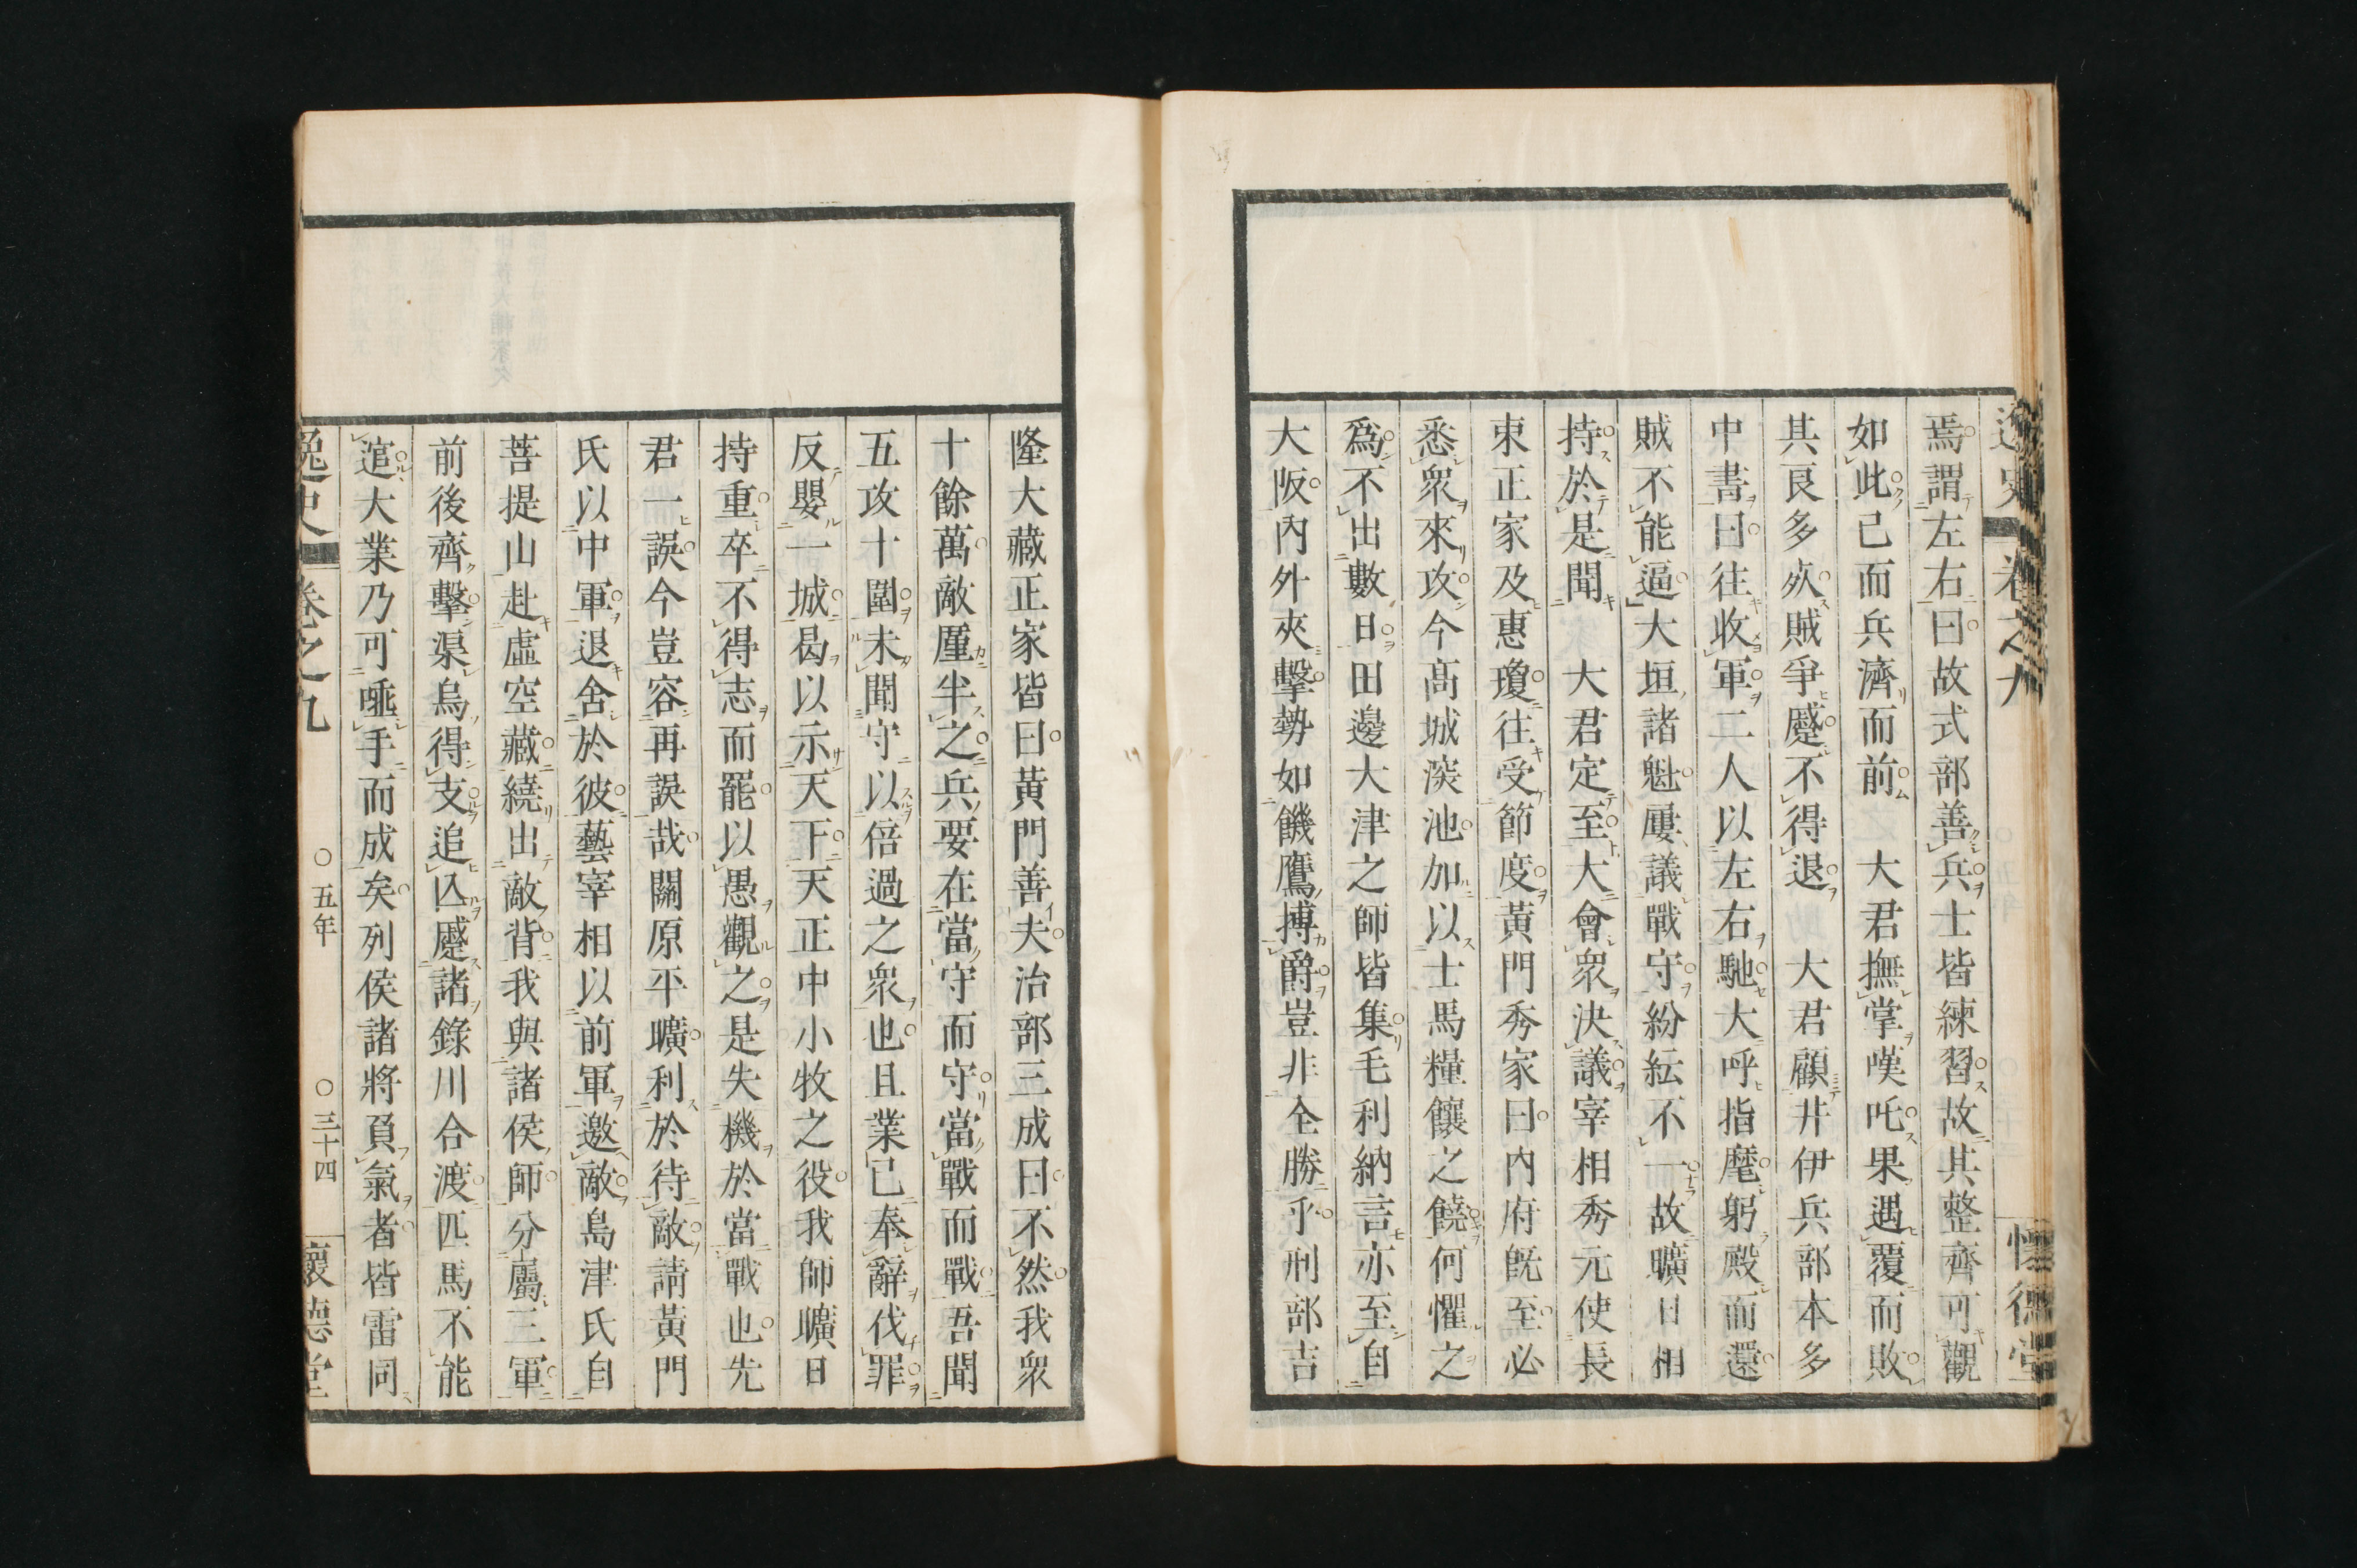 逸史 卷之九 懷德堂
焉謂左右曰故式部善兵士皆練習故其整齊可觀
如此已而兵濟而前　大君撫掌嘆吒果遇覆而敗
其良多㱙賊爭蹙不得退　大君顧井伊兵部本多
中書曰往收軍二人以左右馳大呼指麾躬殿而還
賊不能逼大垣諸魁屢議戰守紛紜不一故曠日相
持於是聞　大君定至大會衆決議宰相秀元使長
束正家及惠瓊往受節度黃門秀家曰內府旣至必
悉衆來攻今高城深池加以士馬糧饟之饒何懼之
爲不出數日田邊大津之師皆集毛利納言亦至自
大阪內外夾擊勢如饑鷹搏爵豈非全勝乎刑部吉
隆大藏正家皆曰黃門善夫治部三成曰不然我衆
十餘萬敵厪半之兵要在當守而守當戰而戰吾聞
五攻十圍未聞守以倍過之衆也且業已奉辭伐罪
反嬰一城曷以示天下天正中小牧之役我師曠日
持重卒不得志而罷以愚觀之是失機於當戰也先
君一誤今豈容再誤哉關原平曠利於待敵請黃門
氏以中軍退舍於彼藝宰相以前軍邀敵島津氏自
菩提山赴虛空藏繞出敵背我與諸侯師分屬三軍
前後齊擊渠烏得支追亾蹙諸錄川合渡匹馬不能
逭大業乃可唾手而成矣列侯諸將負氣者皆雷同
逸史 卷之九 ○五年 ○三十四 懷德堂